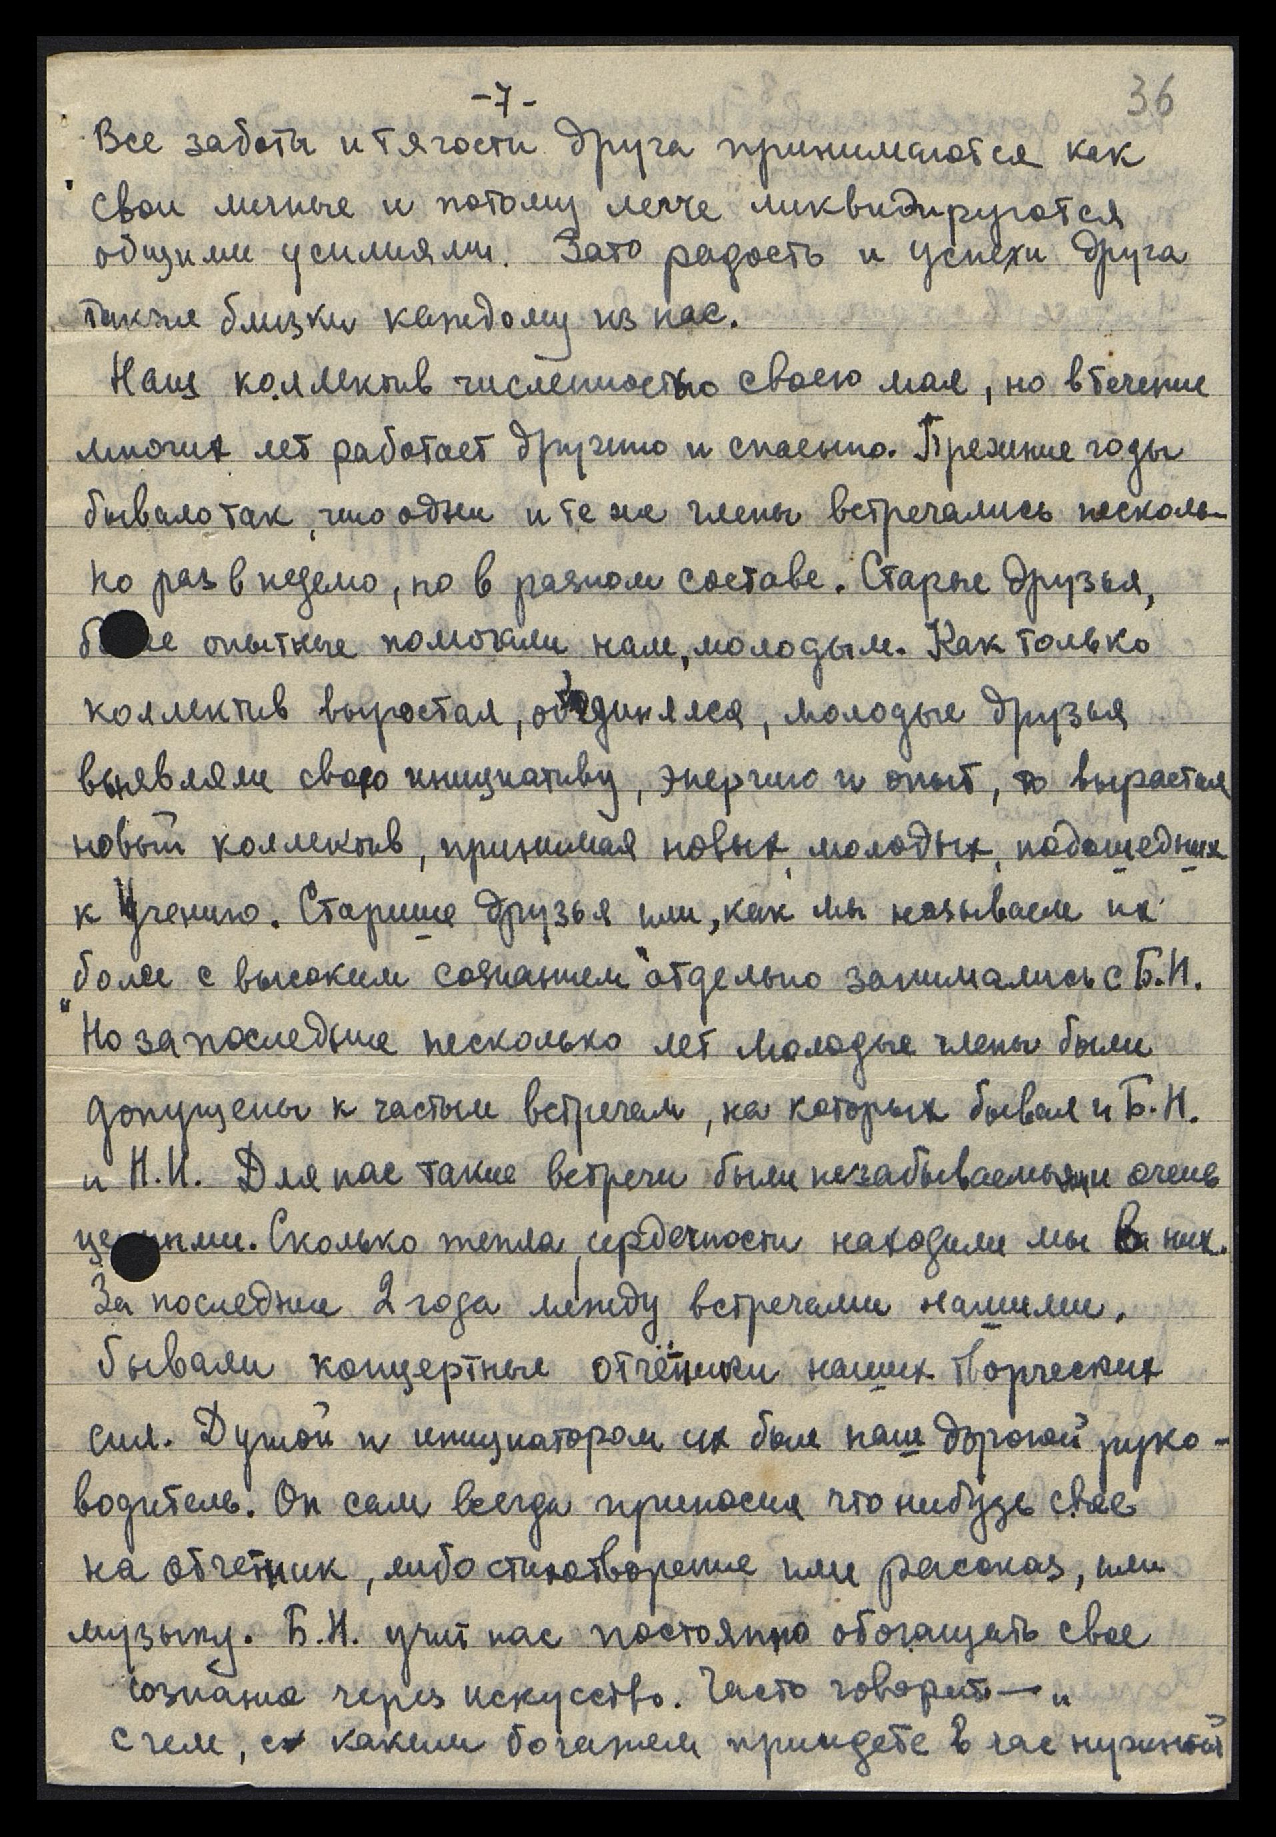 -7-
36
Все заботы и тягости друга принимаются как
свои личные и потому легче ликвидируются
общими усилиями. Зато радость и успехи друга
также близки каждому из нас.
Наш коллектив численностью своею мал, но втечение
многих лет работает дружно и спаенно. Прежние годы
бывало так, что одни и те же члены встречались несколь-
ко раз в неделю, но в разном составе. Старые друзья,
более опытные помогали нам, молодым. Как только
коллектив выростал, объединялся, молодые друзья
выявляли свою инициативу, энергию и опыт, то вырастал
новый коллектив, принимая новых, молодых, подошедших
к Учению. Старшие друзья или, как мы называем их
"более с высоким сознанием" отдельно занимались с Б.Н.
Но за последние несколько лет молодые члены были
допущены к частым встречам, на которых бывал и Б.Н.
и Н.И. Для нас такие встречи были незабываемы и очень
ценными. Сколько тепла, сердечности находили мы в них.
За последние 2 года между встречами нашими,
бывали концертные отчётники наших творческих
сил. Душой и инициатором их был наш дорогой руко-
водитель. Он сам всегда приносил что нибудь свое
на отчетник, либо стихотворение или рассказ, или
музыку. Б.Н. учит нас постоянно обогащать свое
сознание через искусство. Часто говорит — "
с чем, с каким богажем приидете в час нужный